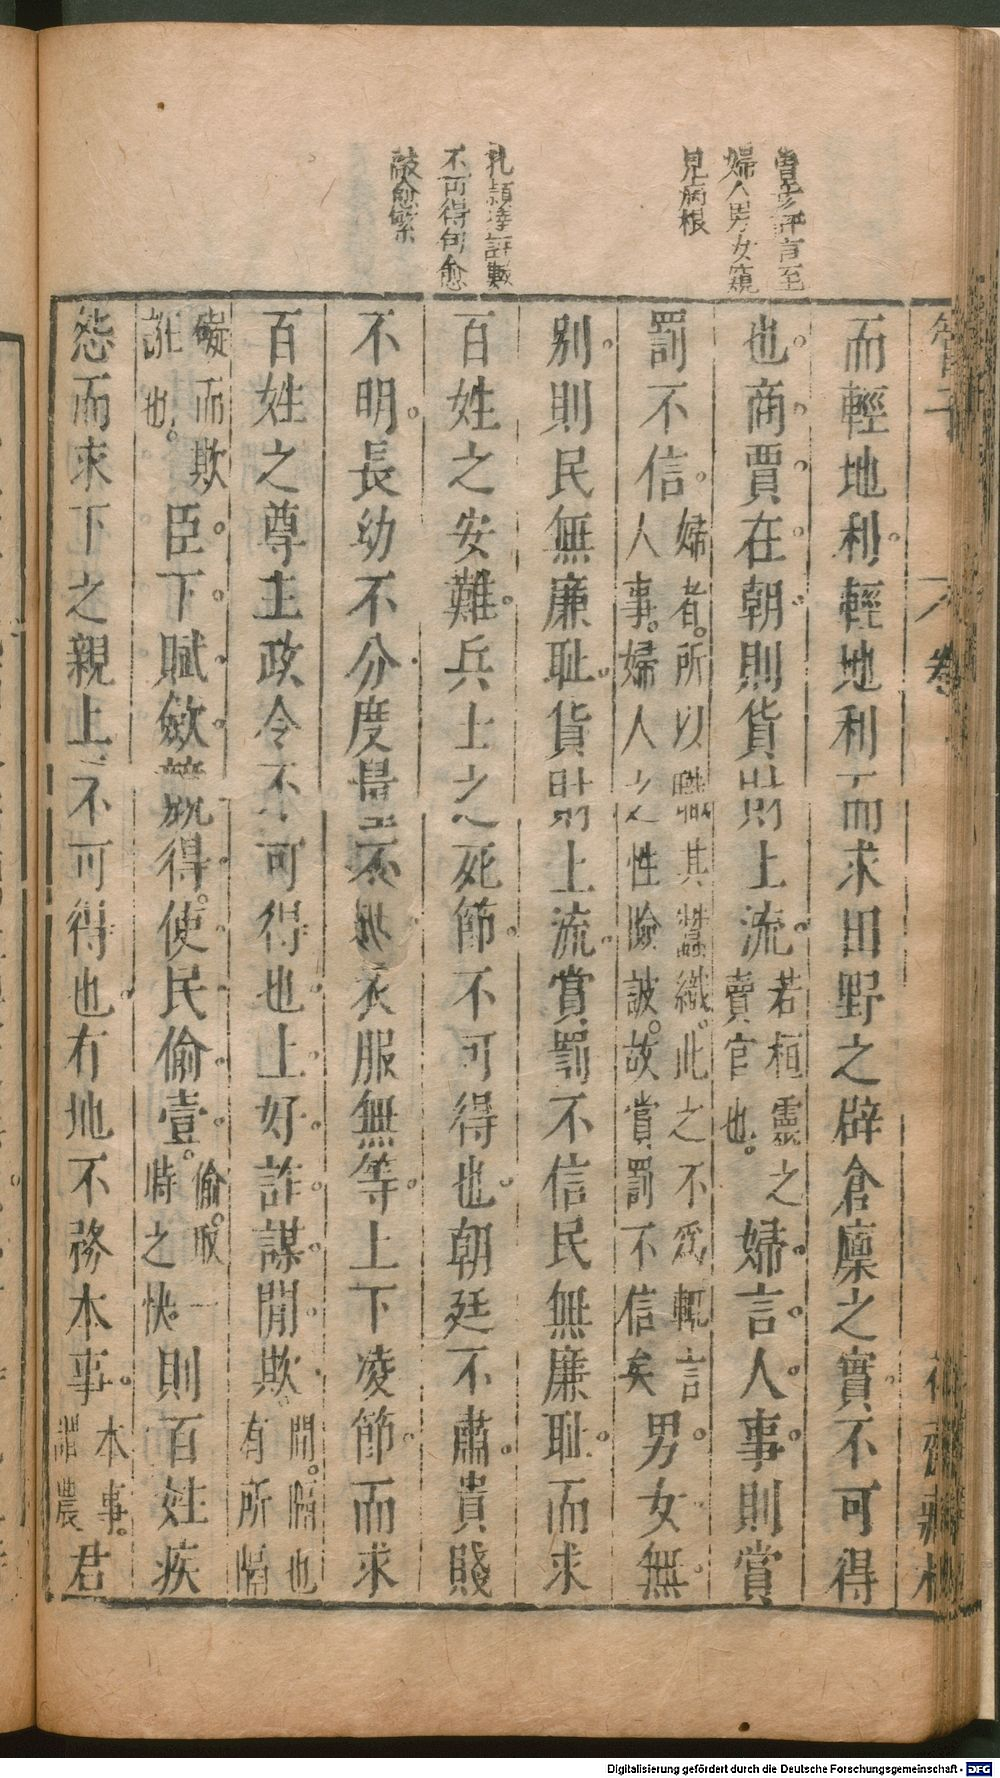 婦人男女窺
見病根
不可得句愈
敲愈繁
而輕地利輕地利而求田野之辟倉廩之實不可得
也商賈在朝則貨財上流若桓靈之賣官也婦言人事則賞
罰不信婦者所以職其蠶織此之不為輒言人事婦人之性險詖故賞罰不信矣男女無
別則民無廉恥貨財上流賞罰不信民無廉恥而求
百姓之安難兵士之死節不可得也朝廷不肅貴賤
不明長幼不分度量不 衣服無等上下凌節而求
百姓之尊主政令不可得也上好詐謀閒欺閒隔也有所隔
礙而欺誑也臣下賦斂競得使民偷壹偷取一時之快則百姓疾
怨而求下之親上不可得也有地不務本事本事謂農君
Digitalisierung gefördert durch die Deutsche Forschungsgemeinschaft - DFG